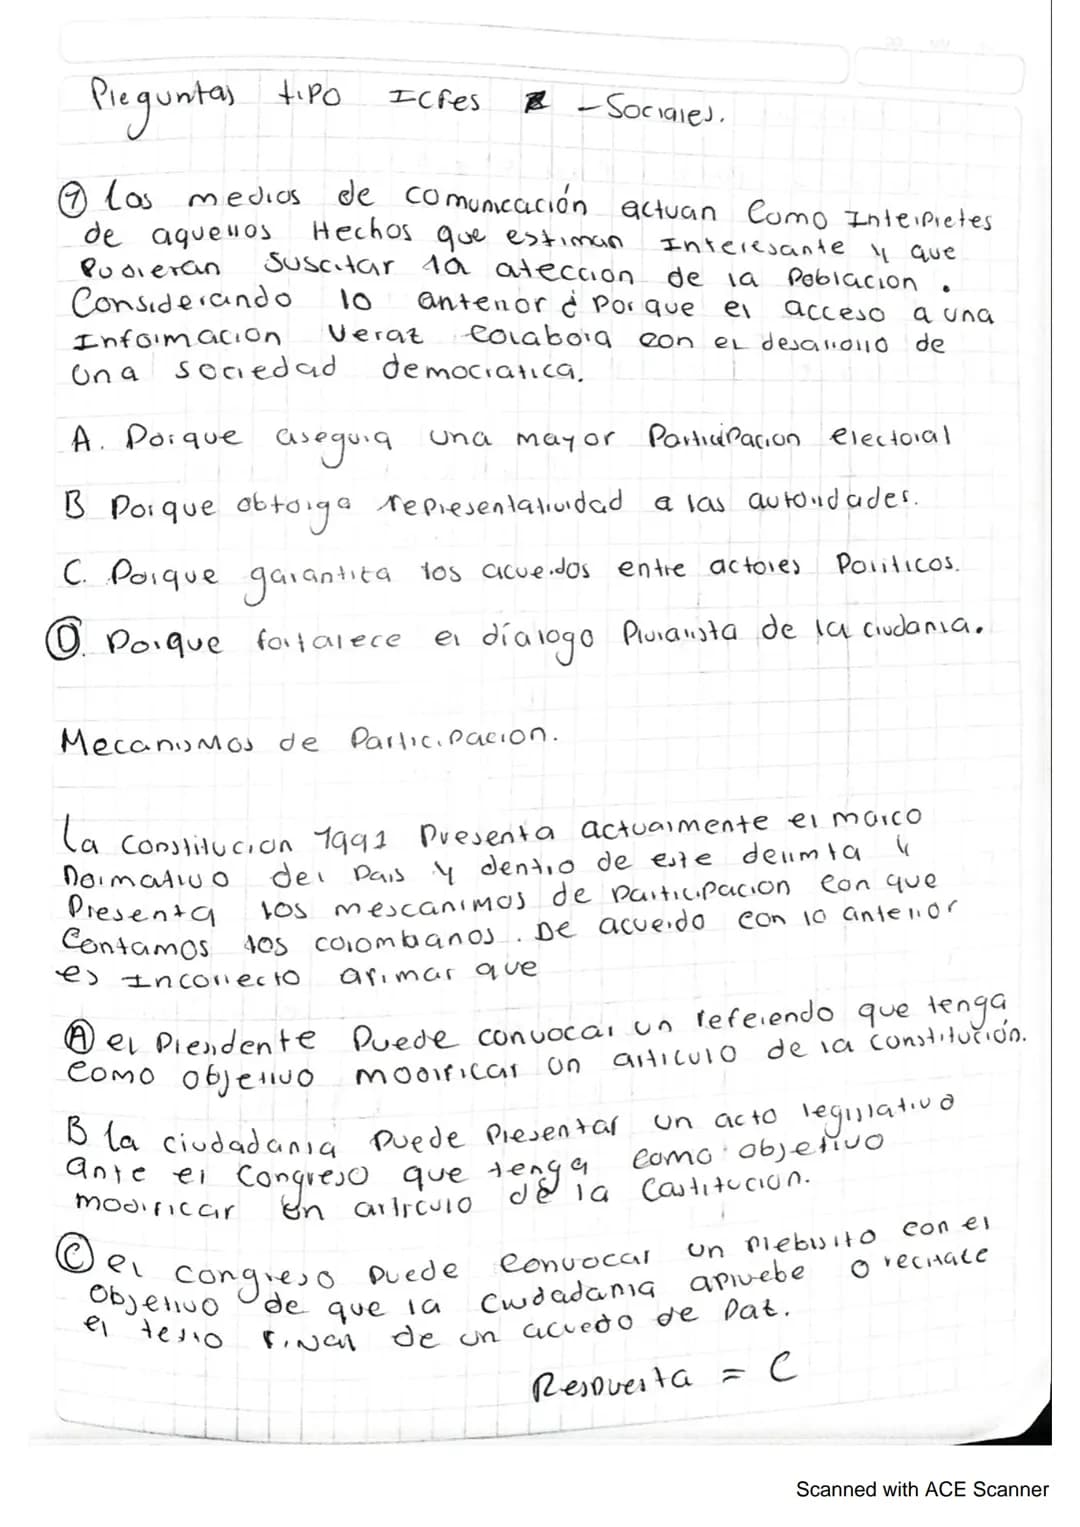 Preguntas tipo Icfes - Sociales.
① Los medios de comunicación actuan Como Interpretes
de aquellos Hechos que estiman Interesante y que
Pudieran Suscitar la atección de la Poblacion.
Considerando lo anterior ¿ Por que el acceso a una
Información Veraz Colabora con el desarrollo de
Una sociedad democratica.
A. Porque asegura una mayor Participacion electoral
B Porque obtorga representatividad a las autoridades.
C. Porque garantiza los acuerdos entre actores Politicos.
D. Porque fortalece el díalogo Pluralista de la ciudania.
Mecanismos de Participacion.
La Constitucion 1991 Presenta actualmente el marco
Normativo del Pais y dentro de este delimta y
Presenta los mescanimos de Participacion con que
Contamos los colombanos. De acuerdo con lo anterior
es Incorrecto afimar que
A el Presidente Puede convocar un referendo que tenga
Como objetivo modificar un articulo de la constitución.
B la ciudadania Puede Presentar un acto legislativo
ante el Congreso que tenga como objetivo
modificar Un articulo de la Castitucion.
C el congreso Puede Convocar un Plebisito con el
Objetivo de que la Ciudadania apruebe o rechace
el texto final de un acuedo de Paz.
Respuesta = C
Scanned with ACE Scanner